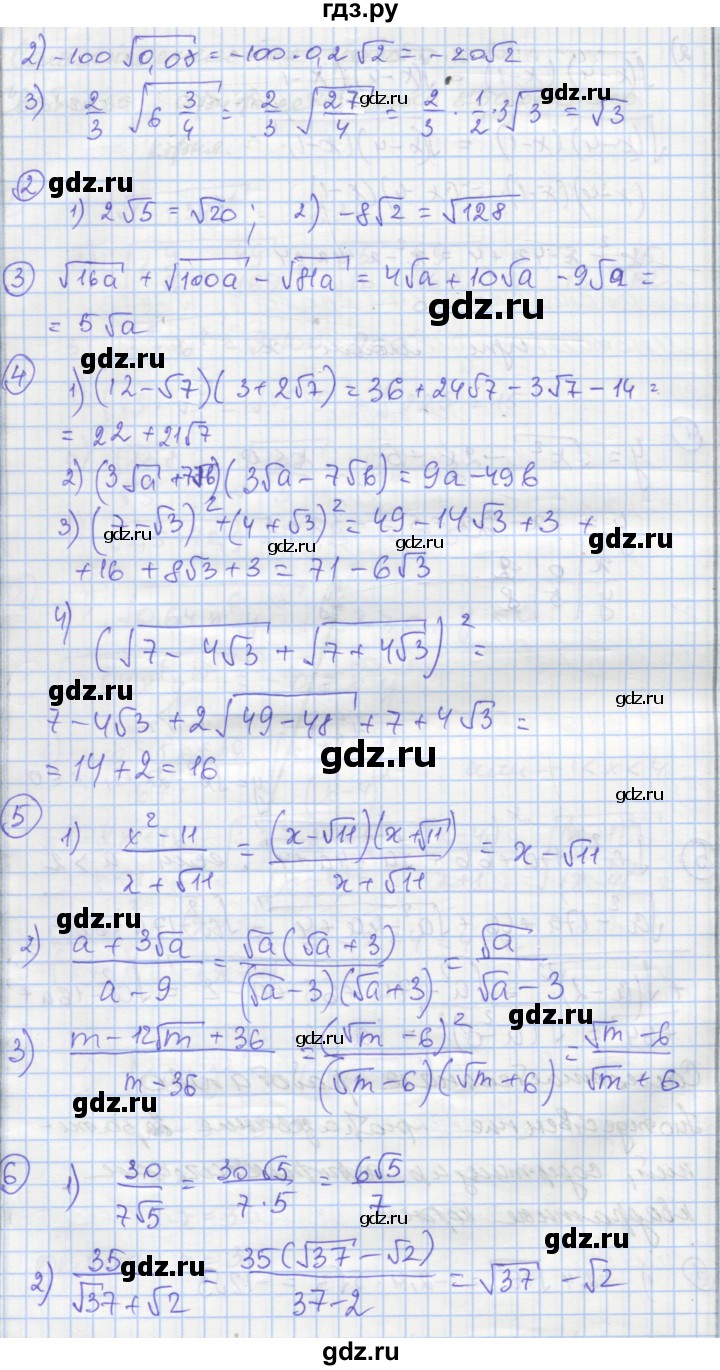 гдз.ру
2) -100 √0,08 = -100 · 0,2 √2 = -20√2
3) 2/3 √(6 3/4) = 2/3 √(27/4) = 2/3 · 1/2 · 3√3 = √3
gdz.ru gdz.ru
② gdz.ru
1) 2√5 = √20; 2) -8√2 = √128
③ √16a + √100a - √81a = 4√a + 10√a - 9√a =
gdz.ru
= 5√a
gdz.ru
④ 1) (12 - √7)(3 + 2√7) = 36 + 24√7 - 3√7 - 14 =
= 22 + 21√7
2) (3√a + 7√b)(3√a - 7√b) = 9a - 49b
3) (7 - √3)² + (4 + √3)² = 49 - 14√3 + 3 +
gdz.ru gdz.ru gdz.ru gdz.ru
+ 16 + 8√3 + 3 = 71 - 6√3
4) (√(7 - 4√3) + √(7 + 4√3))² =
gdz.ru gdz.ru
7 - 4√3 + 2√(49 - 48) + 7 + 4√3 =
gdz.ru
= 14 + 2 = 16
gdz.ru
⑤ 1) (x² - 11)/(x + √11) = ((x - √11)(x + √11))/(x + √11) = x - √11
gdz.ru
2) (a + 3√a)/(a - 9) = (√a(√a + 3))/((√a - 3)(√a + 3)) = √a/(√a - 3)
gdz.ru gdz.ru
3) (m - 12√m + 36)/(m - 36) = (√m - 6)²/((√m - 6)(√m + 6)) = (√m - 6)/(√m + 6)
gdz.ru gdz.ru
⑥ 1) 30/(7√5) = (30√5)/(7 · 5) = (6√5)/7
gdz.ru
2) 35/(√37 + √2) = (35(√37 - √2))/(37 - 2) = √37 - √2
gdz.ru gdz.ru
gdz.ru